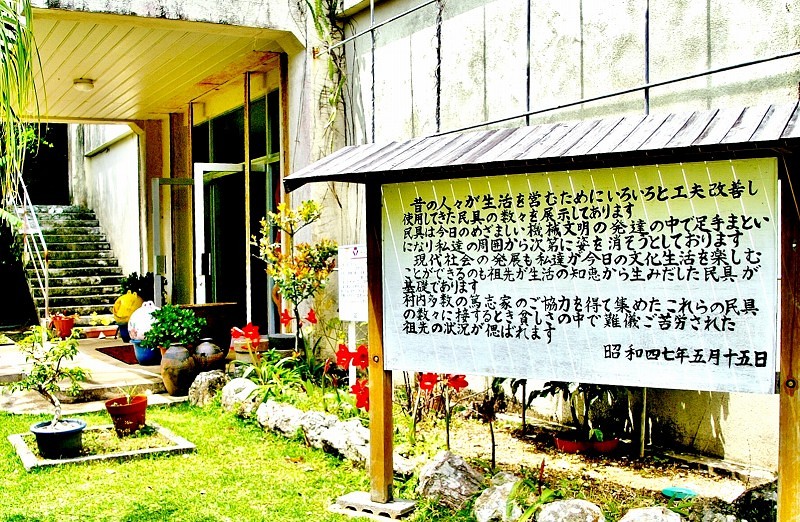 昔の人々が生活を営むためにいろいろと工夫改善し
使用してきた民具の数々を展示してあります
民具は今日のめざましい機械文明の発達の中で足手まとい
になり私達の周囲から次第に姿を消そうとしております
現代社会の発展も私達が今日の文化生活を楽しむ
ことができるのも祖先が生活の知恵から生みだした民具が
基礎であります
村内多数の篤志家のご協力を得て集めたこれらの民具
の数々に接するとき貧しさの中で難儀ご苦労された
祖先の状況が偲ばれます
昭和四七年五月十五日